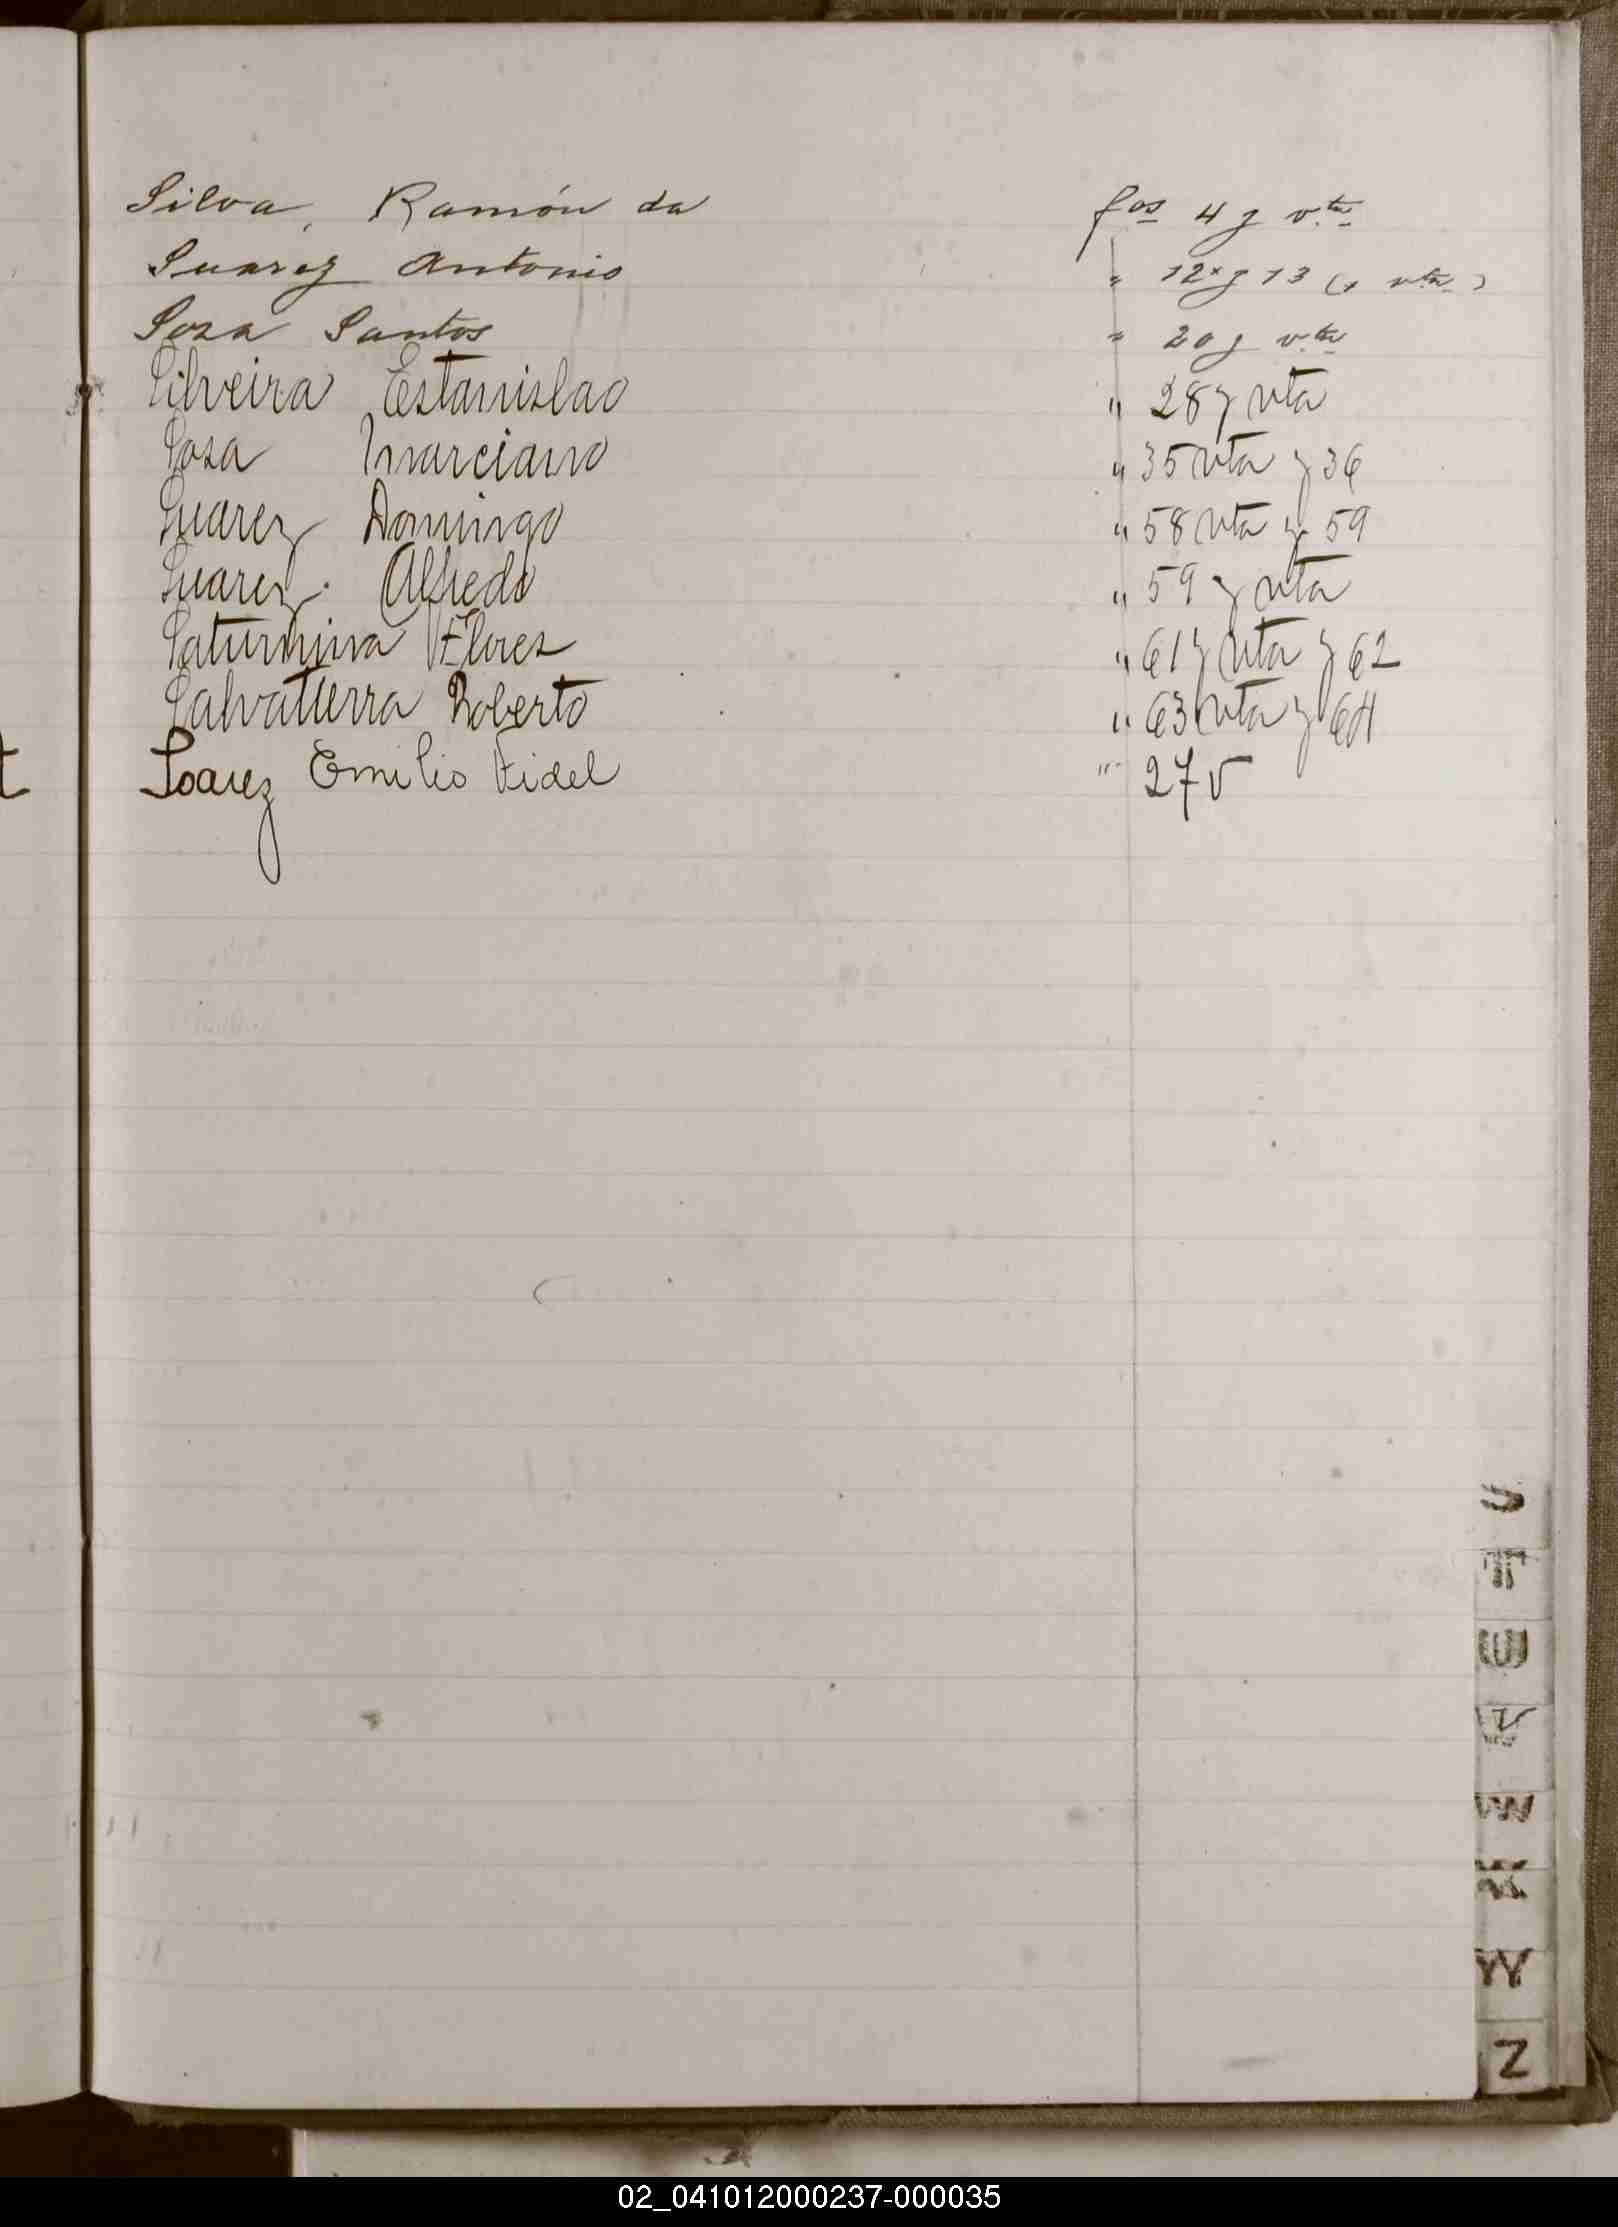 Silva, Ramón da fos 4 y vta
Suarez Antonio " 12 y 13 (y vta)
Sosa Santos " 20 y vta
Silveira Estanislao " 28 y vta
Sosa Marciano " 35 vta y 36
Suarez Domingo " 58 vta y 59
Suarez. Alfredo " 59 y vta
Saturnina Flores " 61 y vta y 62
Salvatierra Roberto " 63 vta y 64
Soarez Emilio Fidel " 27 v
S
T
U
V
W
X
Y
Z
02_041012000237-000035